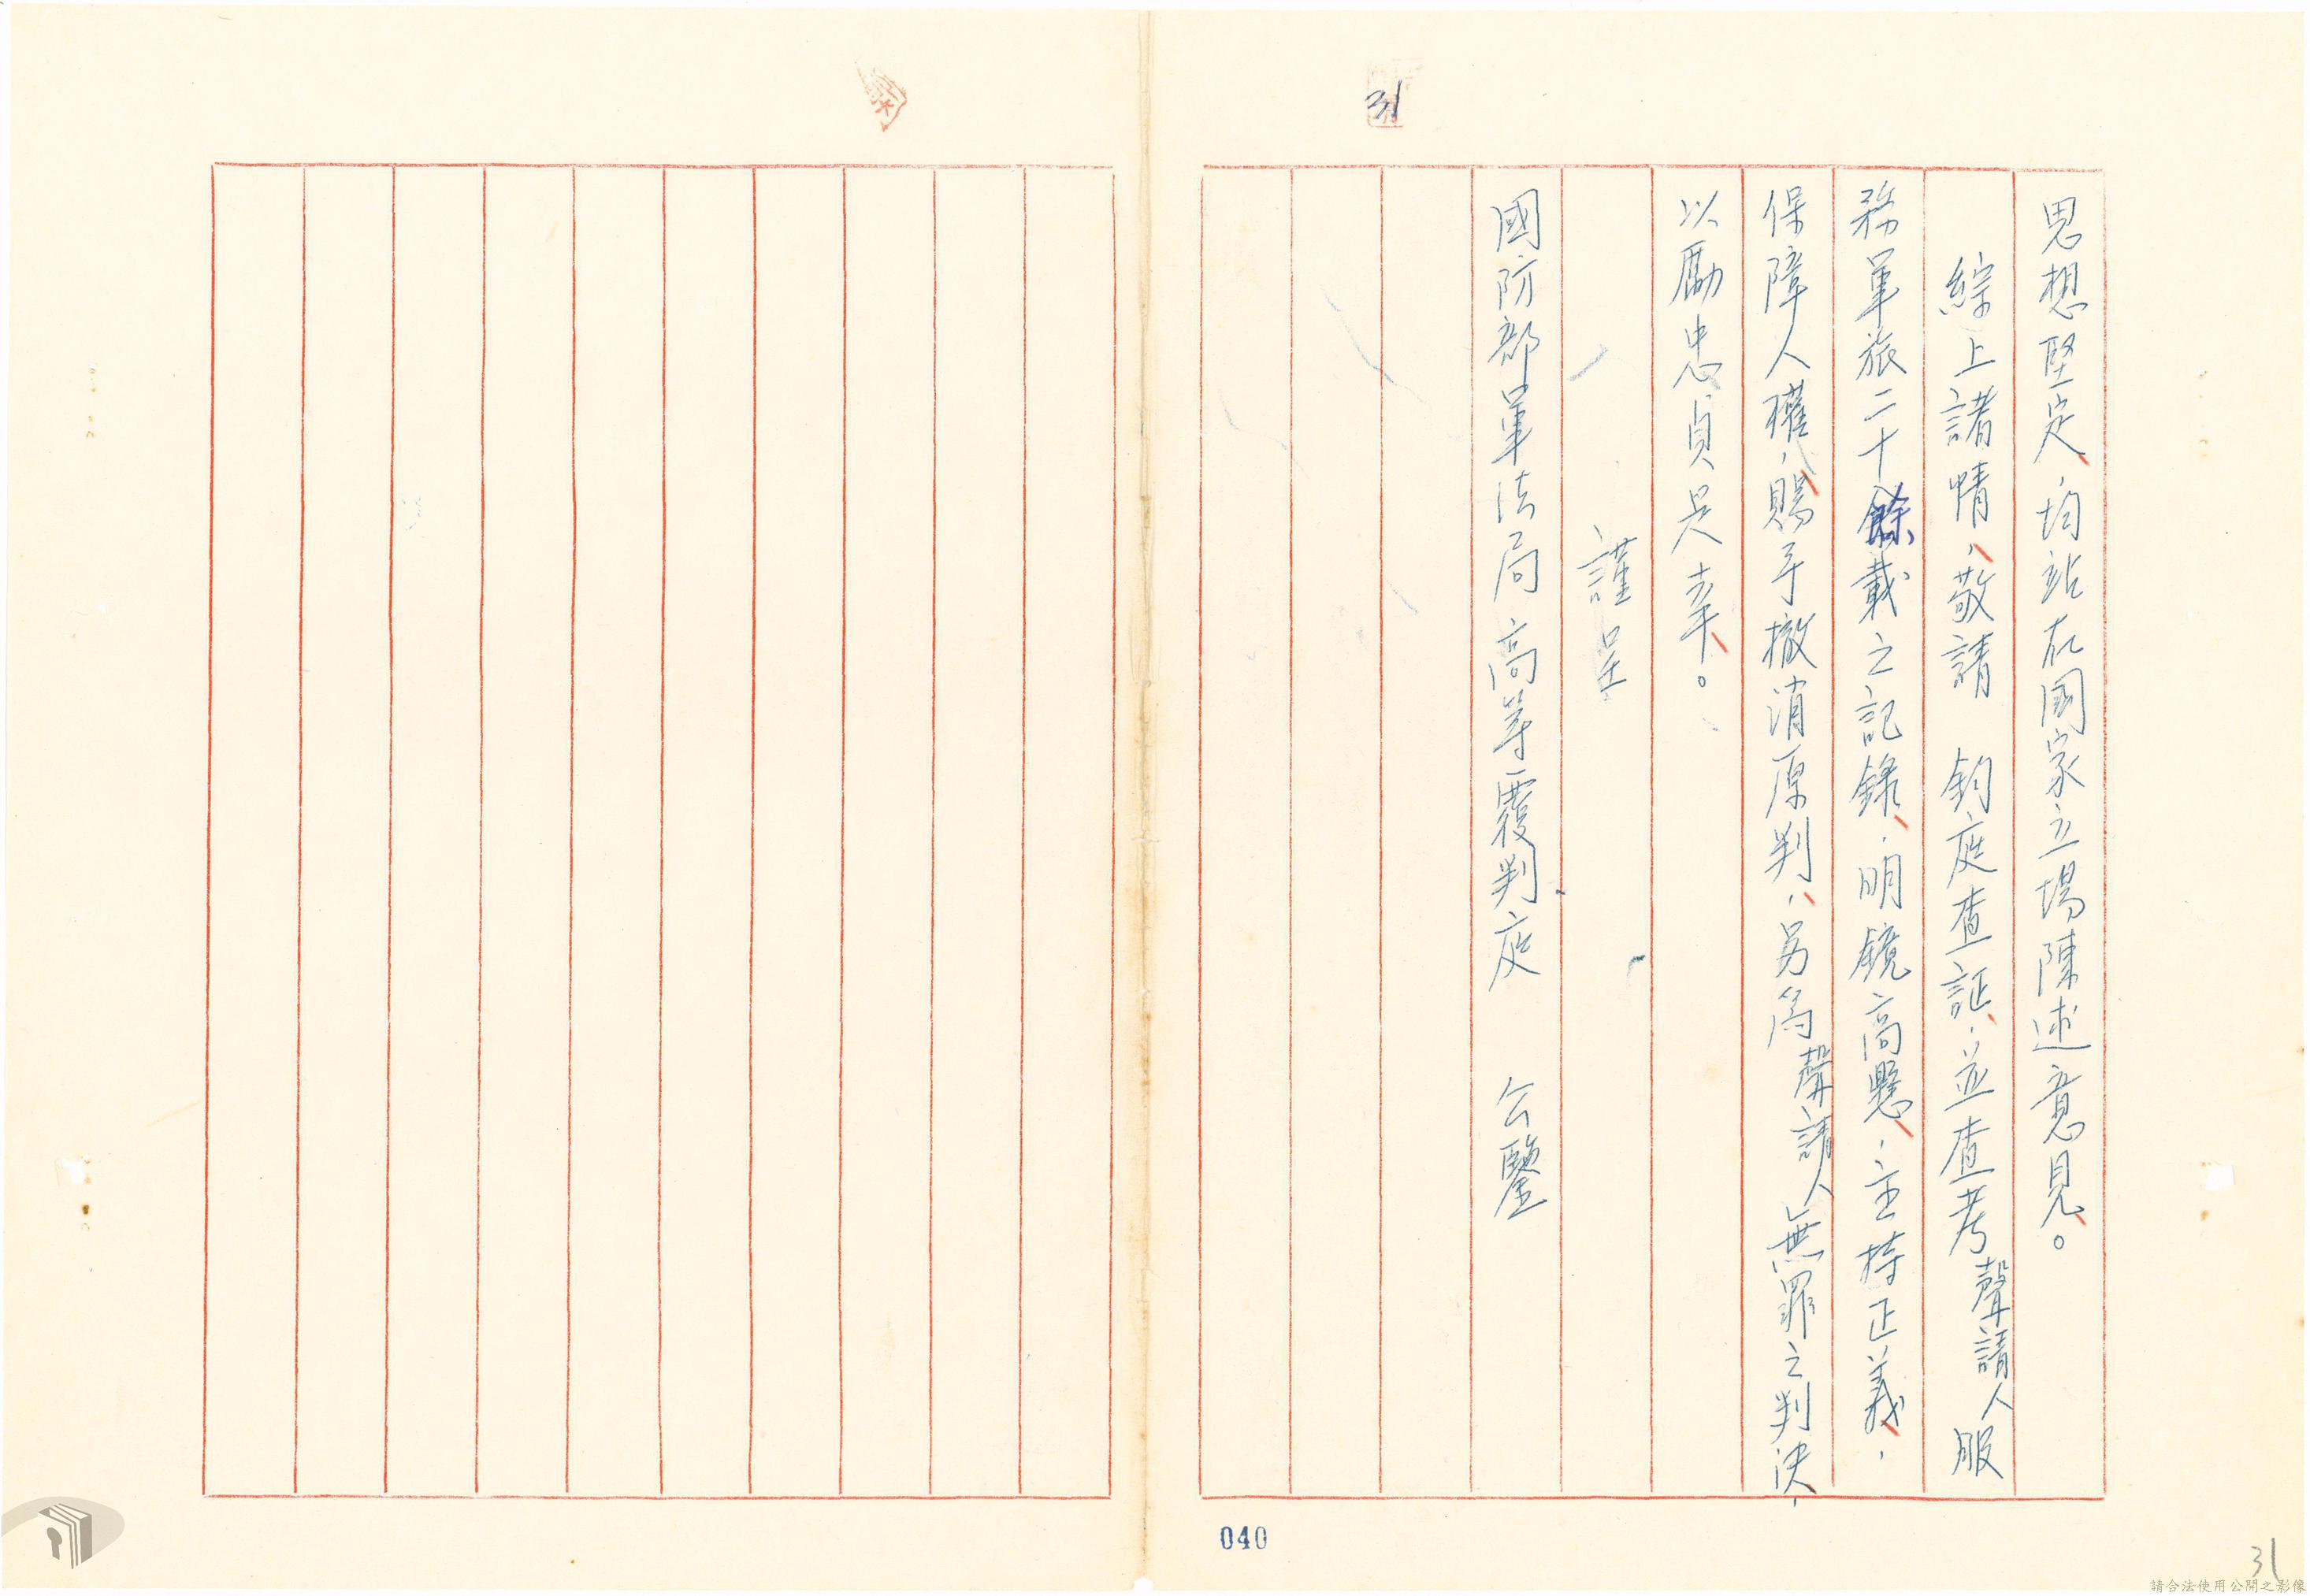 31
思想堅定，均站在國家立場陳述意見。
綜上諸情，敬請　鈞庭查証，並查考聲請人服
務軍旅二十餘載之記錄，明鏡高懸，主持正義，
保障人權，賜予撤消原判，另為聲請人無罪之判決，
以勵忠貞是幸。
謹呈
國防部軍法局高等覆判庭　公鑒
040
31
請合法使用公開之影像